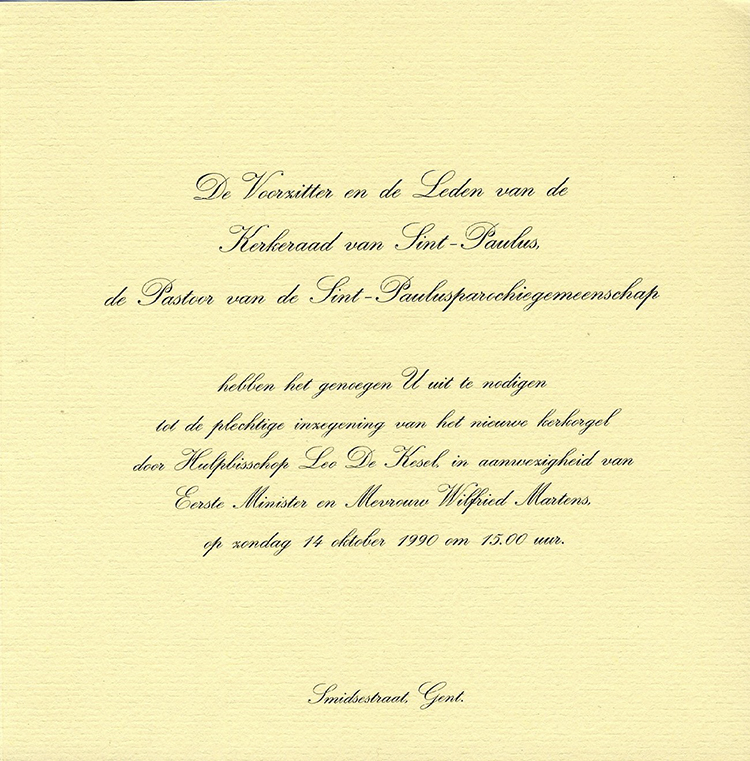 De Voorzitter en de Leden van de
Kerkeraad van Sint-Paulus,
de Pastoor van de Sint-Paulusparochiegemeenschap
hebben het genoegen U uit te nodigen
tot de plechtige inzegening van het nieuwe kerkorgel
door Hulpbisschop Leo De Kesel, in aanwezigheid van
Eerste Minister en Mevrouw Wilfried Martens,
op zondag 14 oktober 1990 om 15.00 uur.
Smidsestraat, Gent.